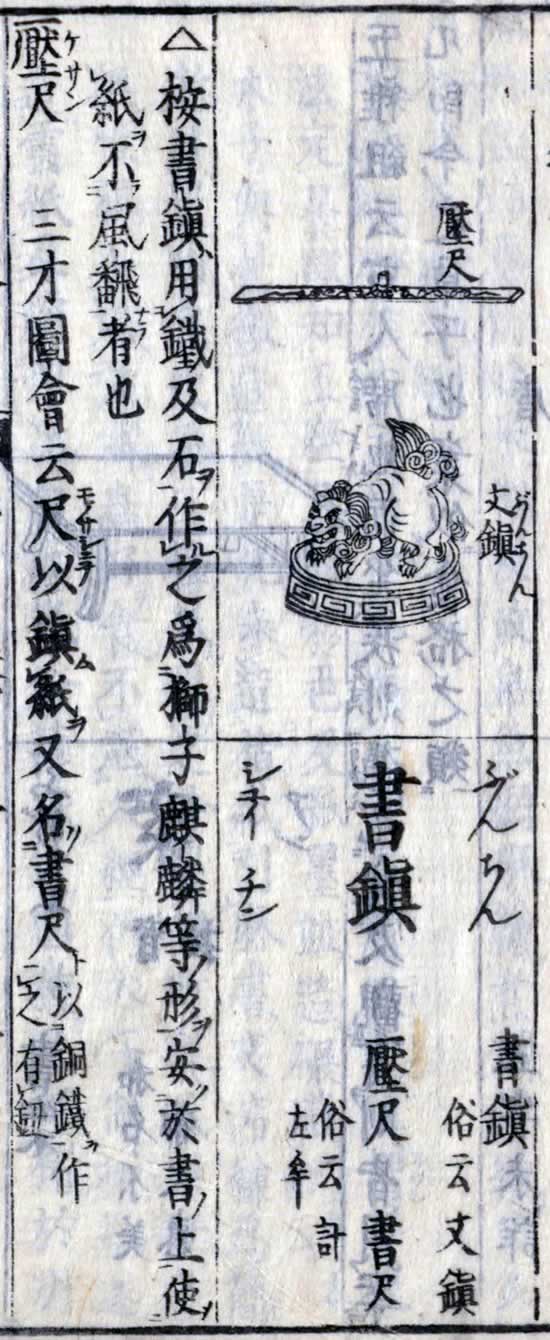 ぶんちん
文鎭
壓尺
ぶんちん
書鎭
シユイ チン
書鎭 俗云文鎭
壓尺 俗云計左牟 書尺
△按書鎭用鐵及石作之爲獅子麒麟等形安於書上使
紙不風飜者也
ケサン
壓尺 三才圖會云尺以鎭紙又名書尺以銅鐵作之有鈕